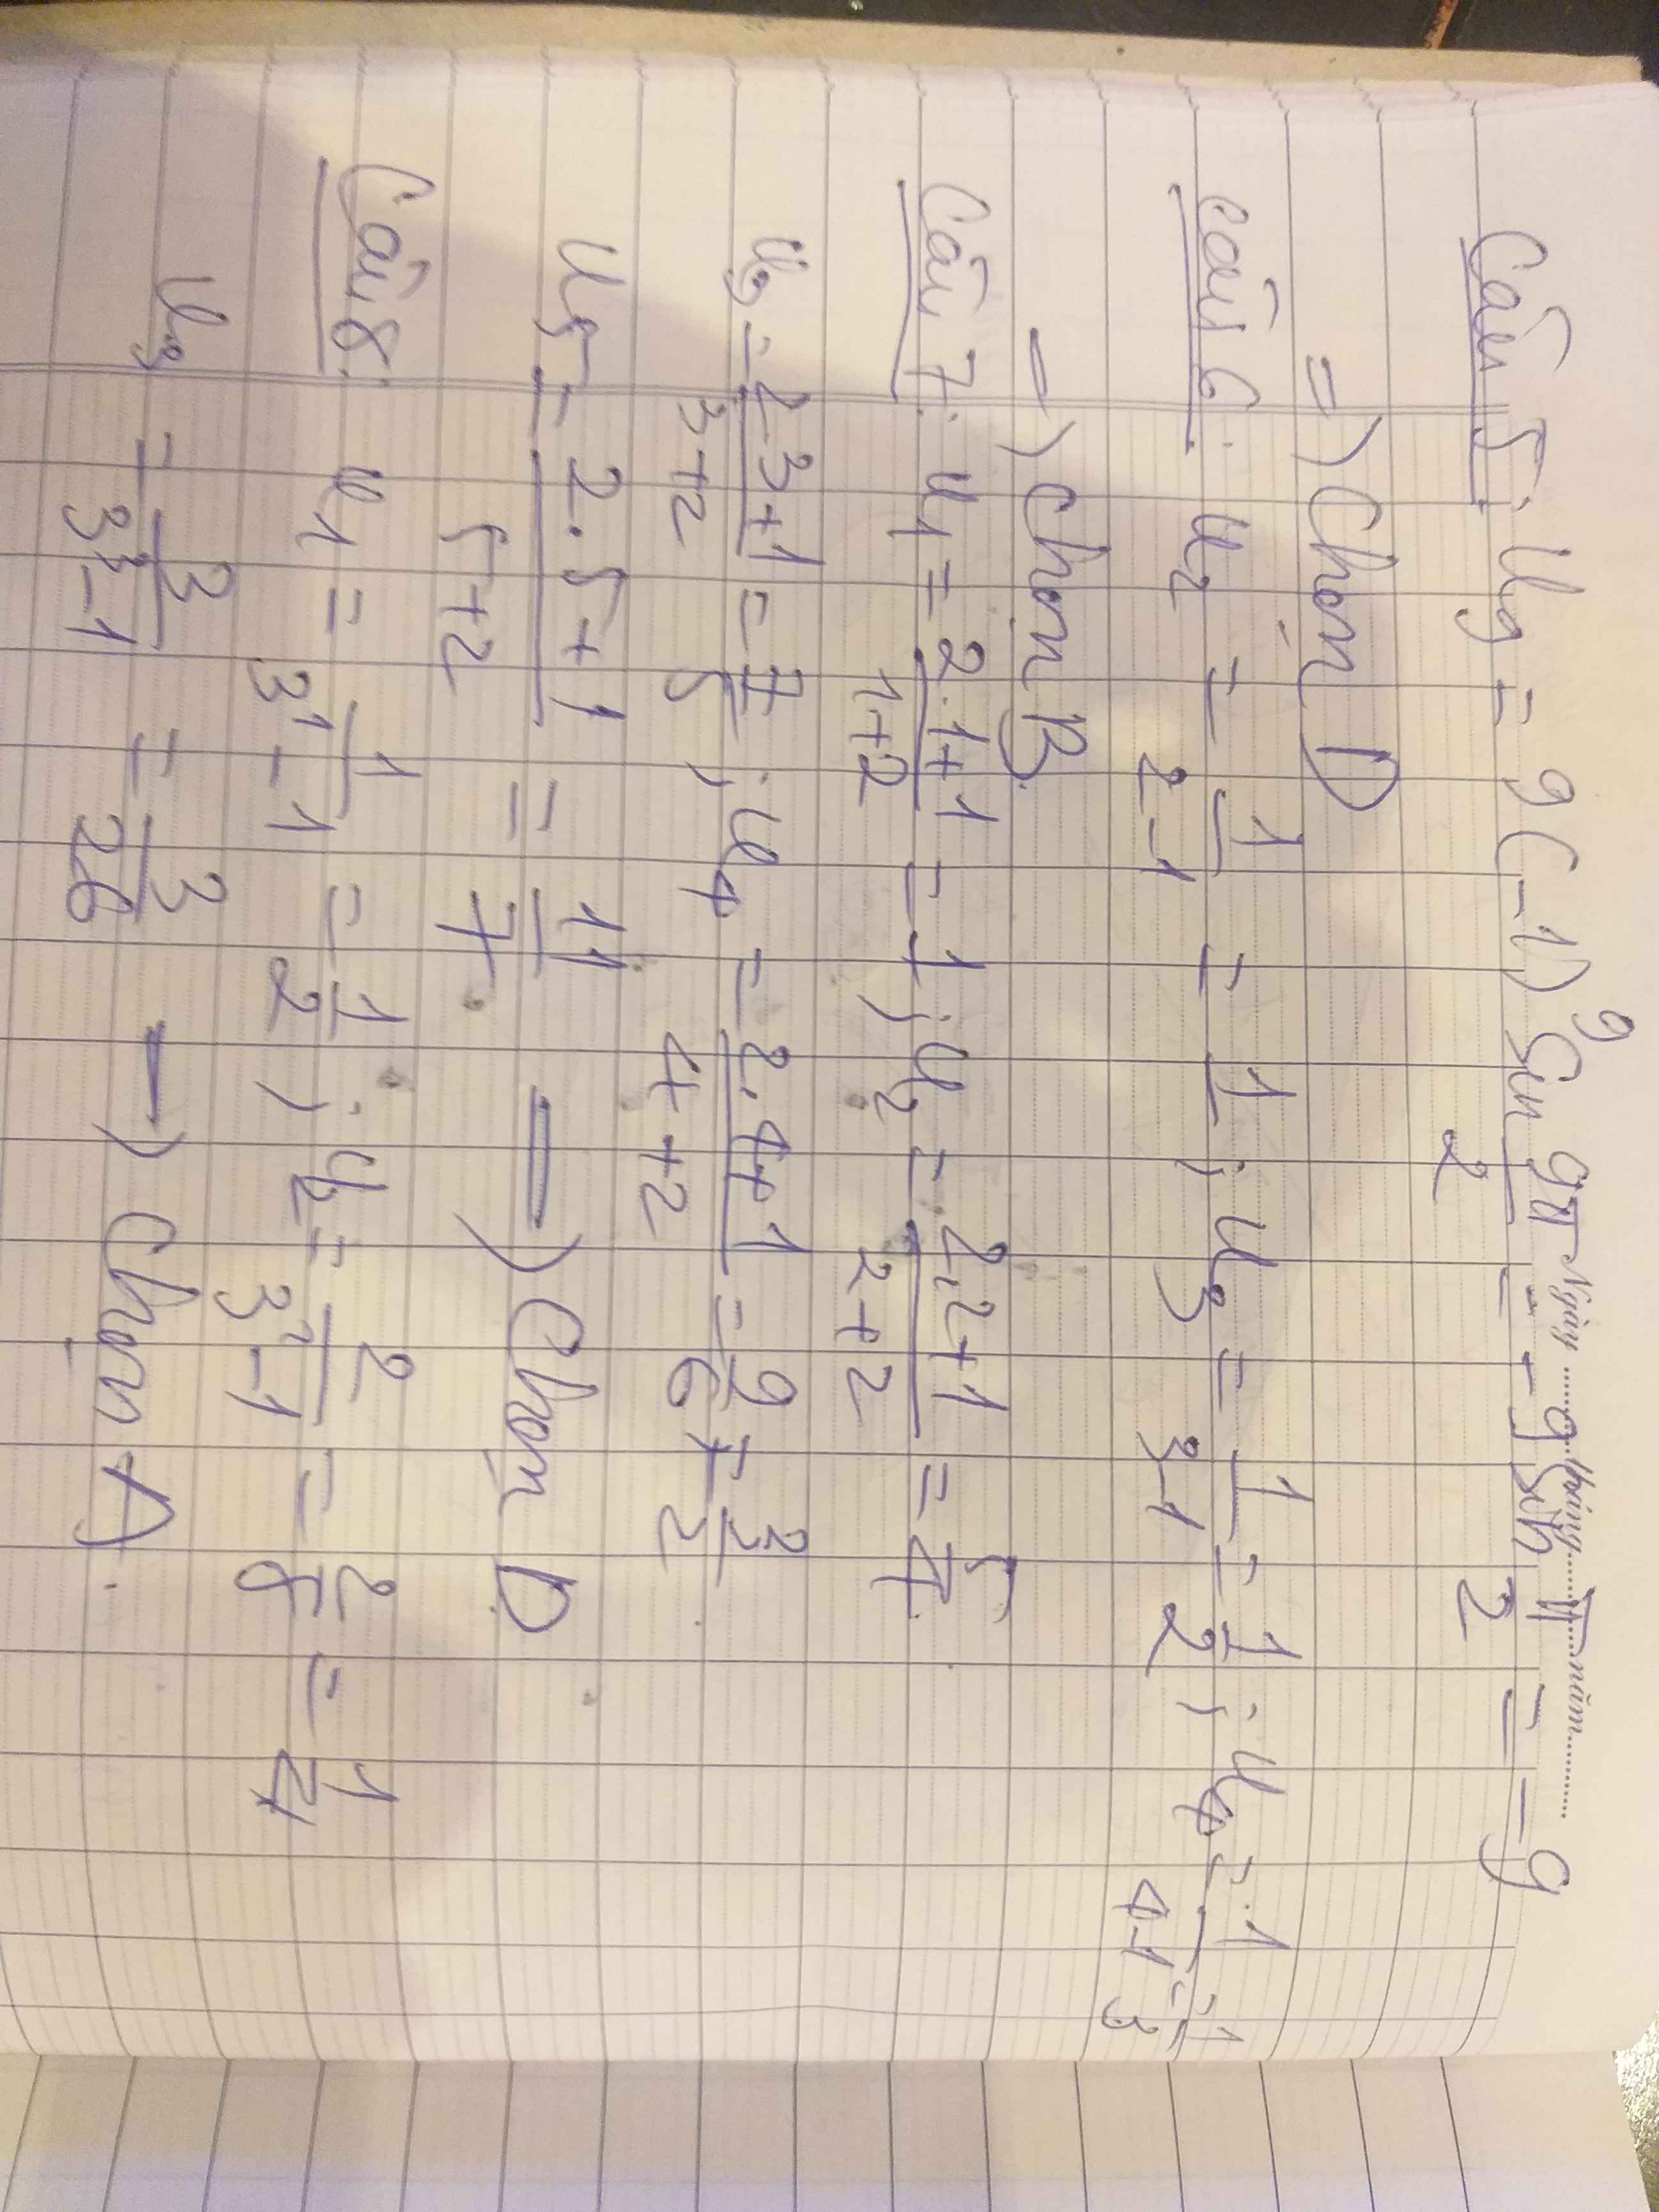 Ngày ............ tháng ............ năm ............
Câu 5: U9 = 9(-1)^9 Sin 9π/2 = -9 sin π/2 = -9
=) Chọn D
Câu 6: U2 = 1/(2-1) = 1/1 ; U3 = 1/(3-1) = 1/2 ; U4 = 1/(4-1) = 1/3
=) Chọn B
Câu 7: U1 = (2.1+1)/(1+2) = 1 ; U2 = (2.2+1)/(2+2) = 5/4
U3 = (2.3+1)/(3+2) = 7/5 ; U4 = (2.4+1)/(4+2) = 9/6 = 3/2
U5 = (2.5+1)/(5+2) = 11/7 =) Chọn D
Câu 8: U1 = 1/(3^1-1) = 1/2 ; U2 = 2/(3^2-1) = 2/8 = 1/4
U3 = 3/(3^3-1) = 3/26 =) Chọn A